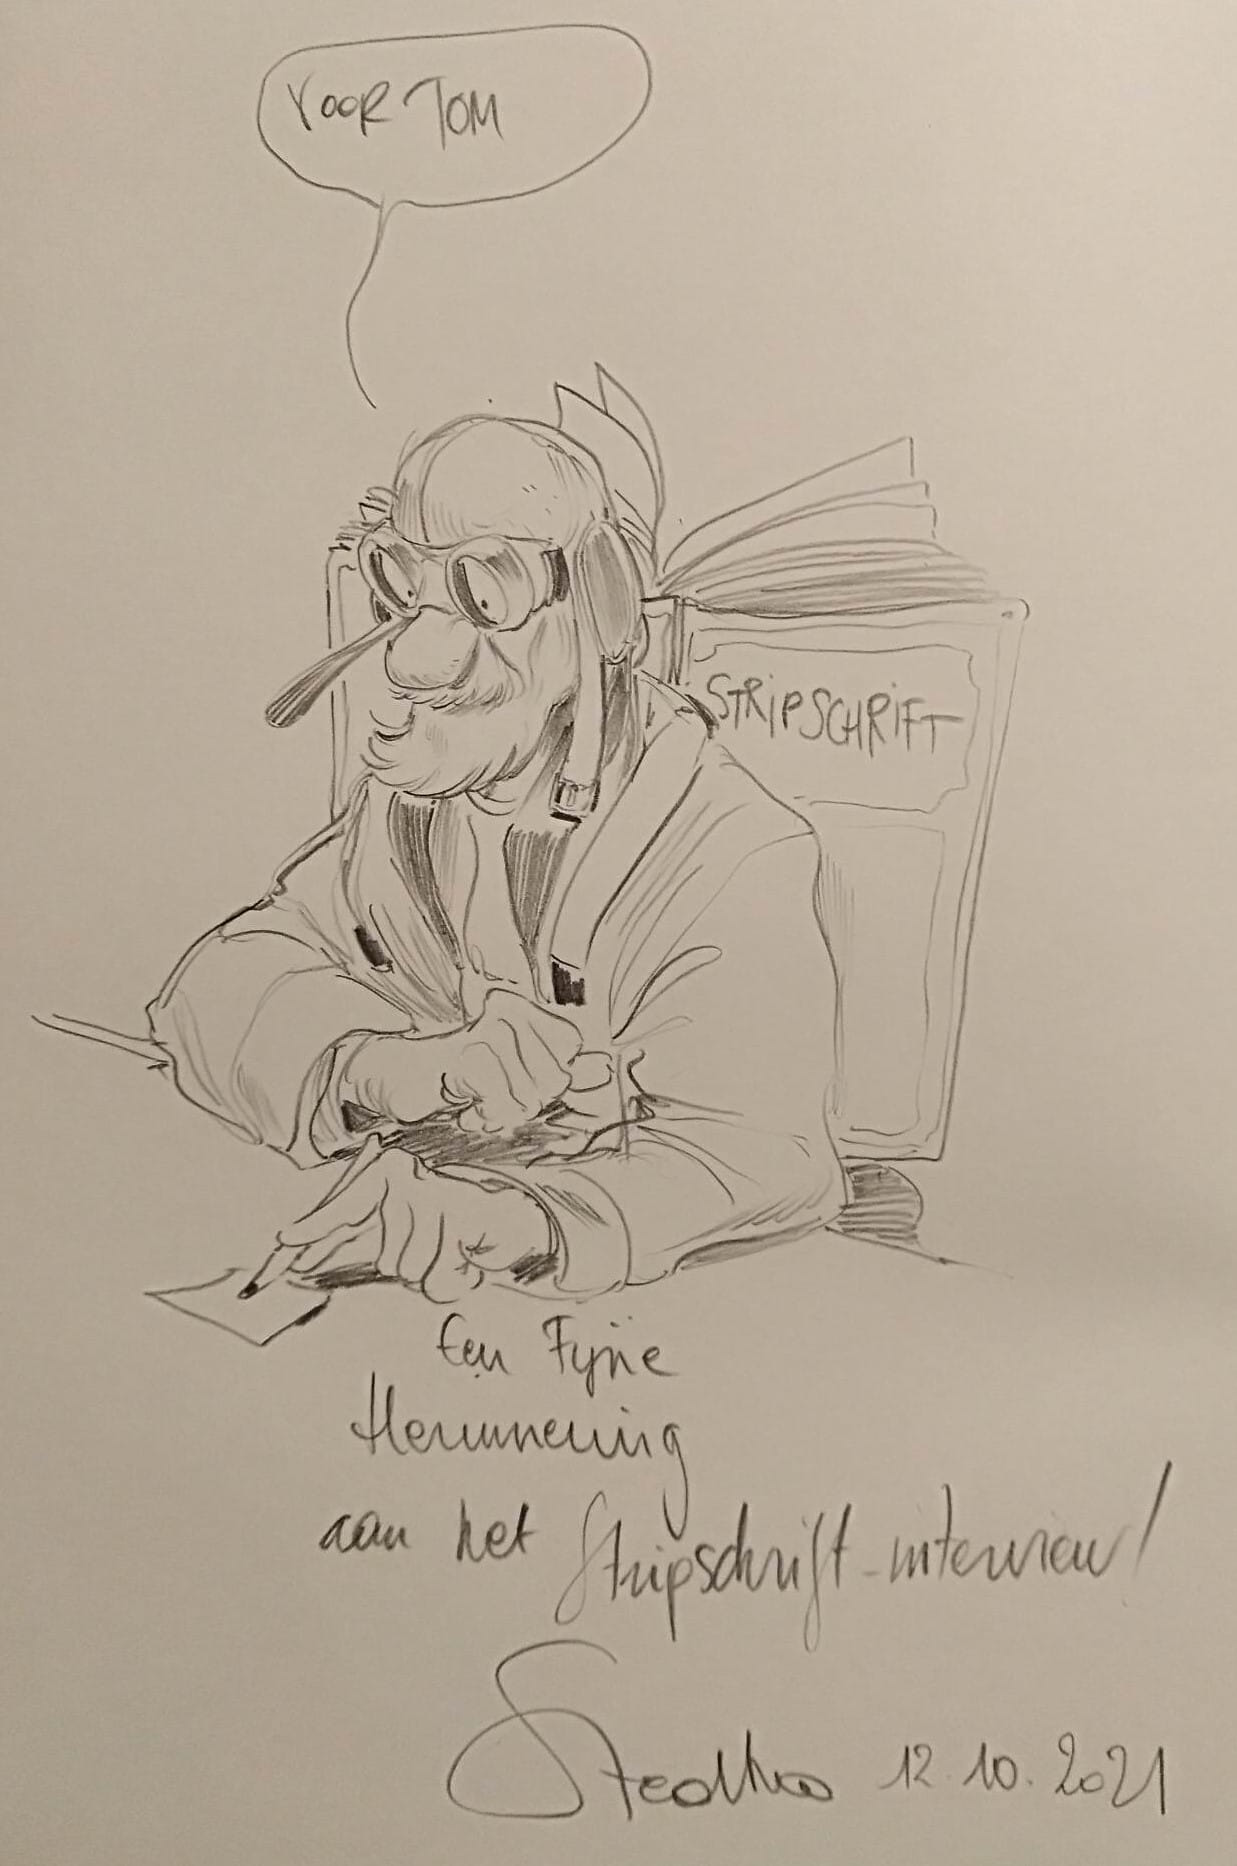 VOOR TOM
STRIPSCHRIFT
Een Fijne
Herinnering
aan het Stripschrift-interview!
Stedho 12.10.2021